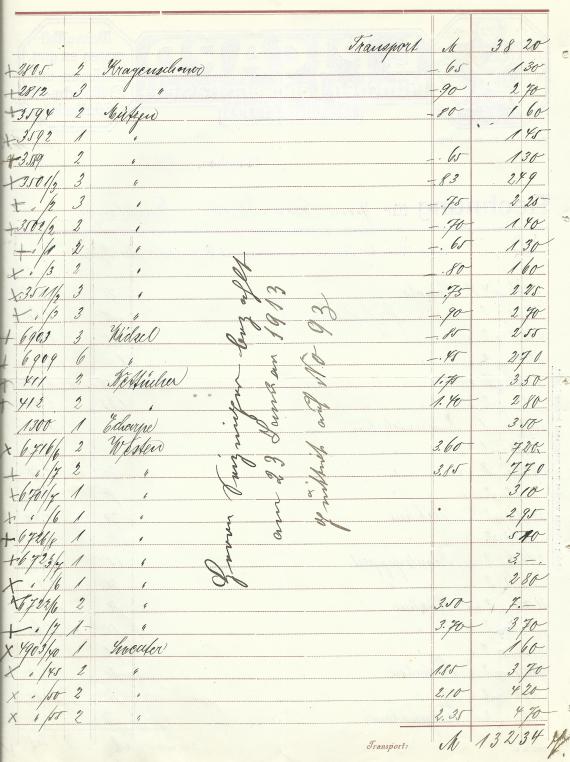 Transport M 38 20
2805 2 Kragenschoner -.65 1 30
2812 3 " -.90 2 70
3594 2 Mützen -.80 1 60
3592 1 " 1 45
3589 2 " -.65 1 30
3501/3 3 " -.83 2 49
" /2 3 " -.75 2 25
3502/2 2 " -.70 1 40
" /1 2 " -.65 1 30
" /3 2 " -.80 1 60
3511/2 3 " -.75 2 25
" /3 3 " -.90 2 70
6903 3 -.85 2 55
6909 6 " -.45 2 70
411 2 1.75 3.50
412 2 " 1.40 2 80
1300 1 Echarpe 3 50
6716/6 2 Westen 3.60 7 20
" /7 2 " 3.85 7 70
6701/7 1 " 3 10
" /6 1 " 2 95
6726/6 1 "
6723/7 1 " 3.-
" /6 1 " 2 80
6722/6 2 " 3.50 7.-
" /7 1 " 3.70 3 70
4903/40 1 Sweater 1 60
" /45 2 " 1.85 3 70
" /50 2 " 2.10 4 20
" /55 2 " 2.35 4 70
Transport: M 132 34
Herrn bezahlt
am 23 Januar 1913
auf No 93